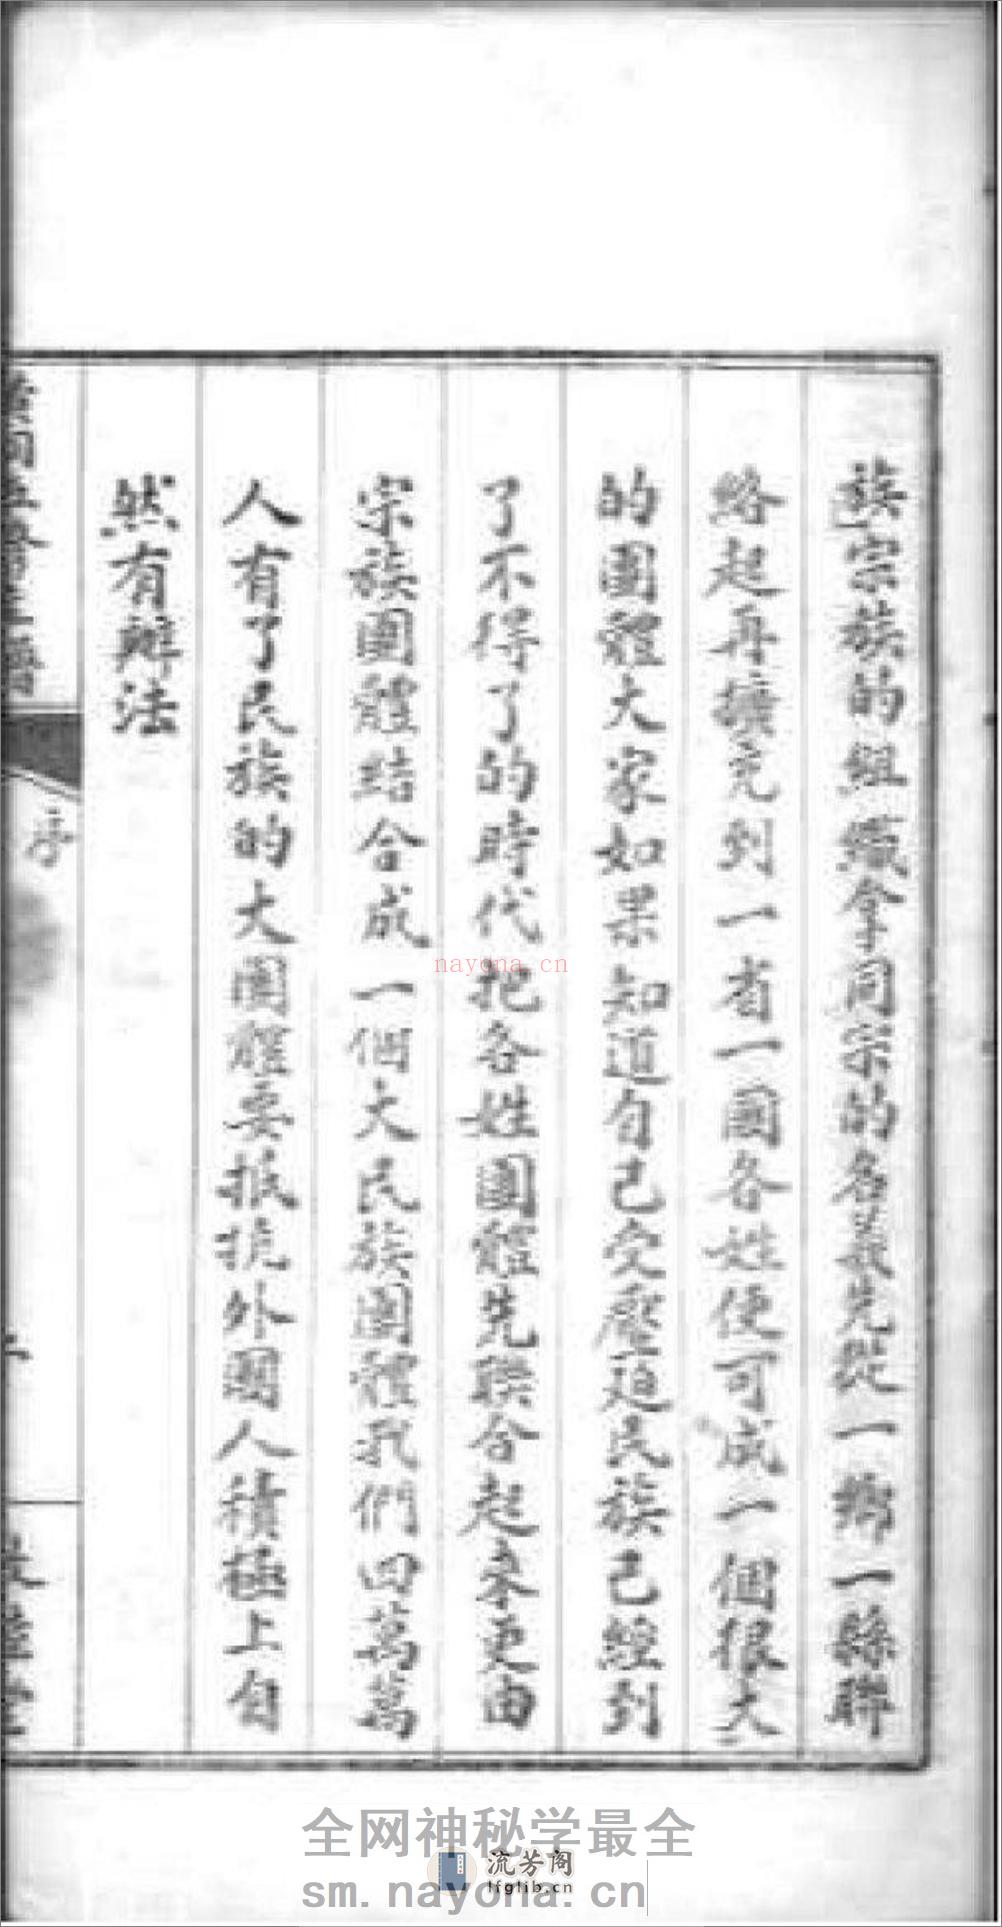 族宗族的組織拿同宗的名義先從一鄉一縣聯
絡起再擴充到一省一國各姓便可成一個很大
的團體大家如果知道自己受壓迫民族己經到
了不得了的時代把各姓團體先聯合起來更由
宗族團體結合成一個大民族團體我們四萬萬
人有了民族的大團體要抵抗外國人積極上自
然有辦法
序
nayona.cn
全网神秘学最全
流芳阁
lfglib.cn
sm.nayona.cn